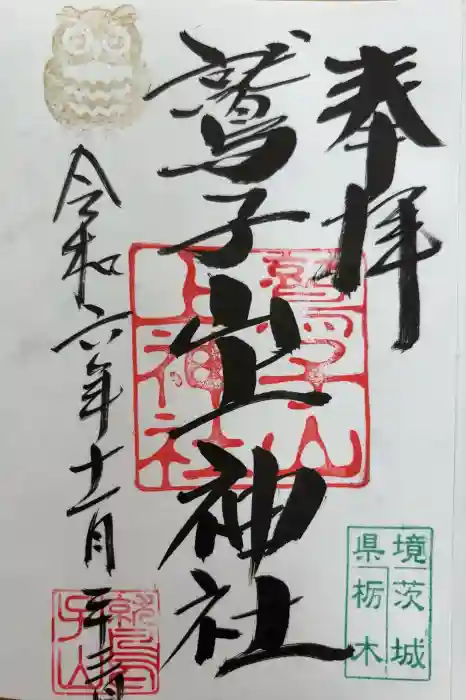 奉拝
鷲子山上神社
令和六年十一月二十三日
鷲子山
上神社
茨城
栃木
県境
鷲子山